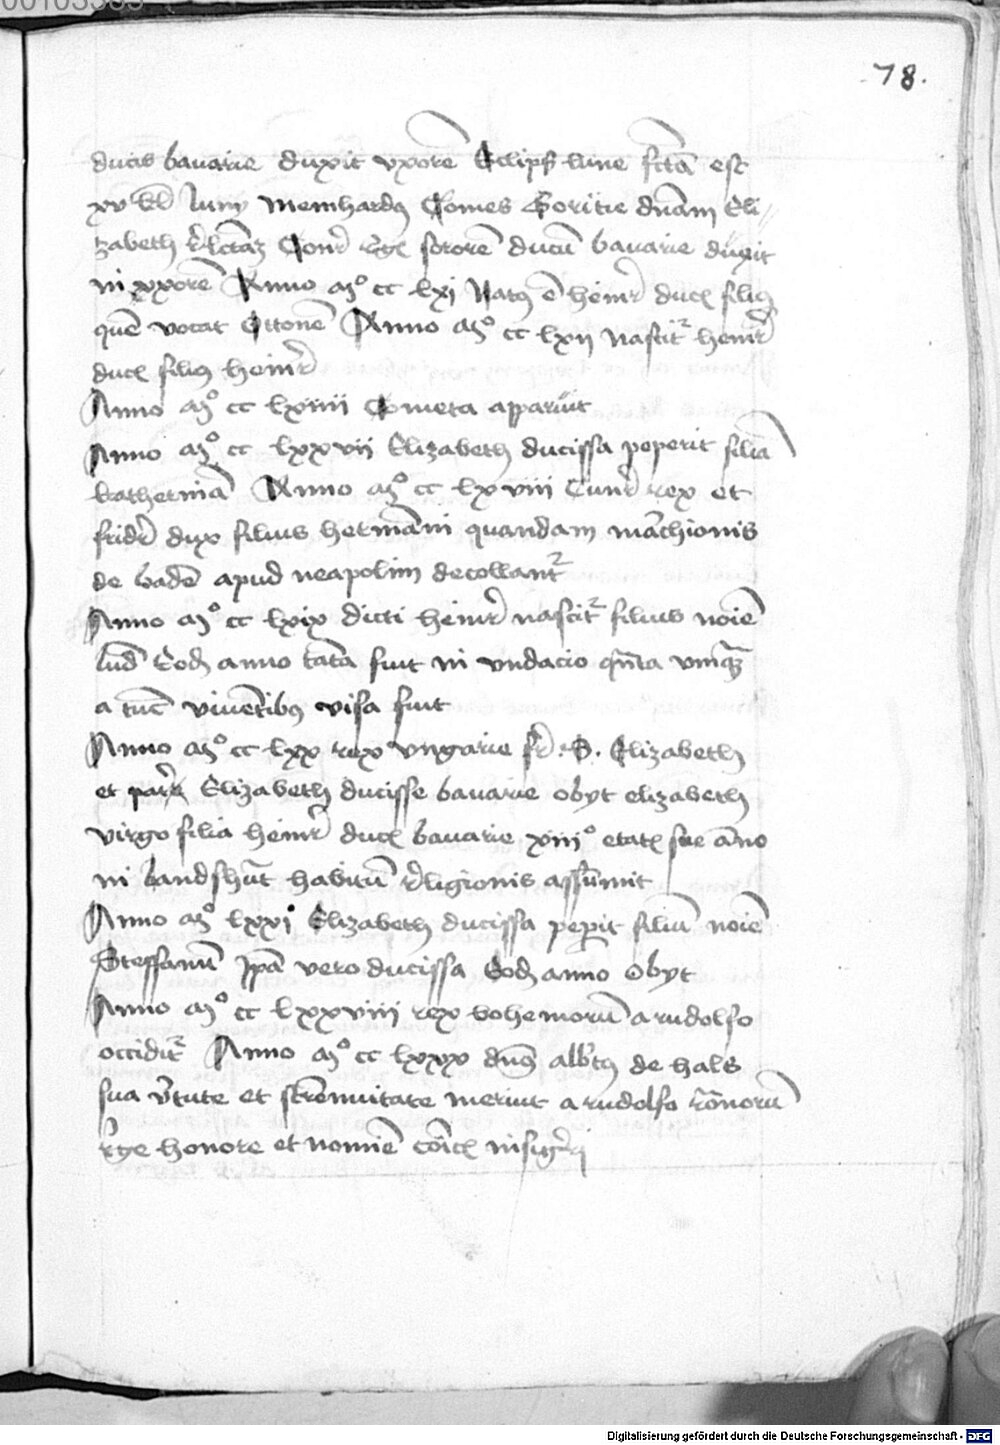 00103333
78.
ducis bavarie duxit vxorē Eclipsis lune fctā est
xv kl Iunij Meinhardꝰ Comes Goritie dnām Eli
zabeth rͤlctaʒ Conr̄ rͤgꝭ sororē ducū bavarie duxit
in vxorē Anno mͦ cc lxi Natꝰ ē heinr̄ ducꝭ filiꝰ
quē vocat Ottonē Anno mͦ cc lxii nascitᷣ heinr̄
ducꝭ filiꝰ heinr̄
Anno mͦ cc lxiiii Cometa apparuit
Anno mͦ cc lxxvii Elizabeth ducissa peperit filiā
katherinā Anno mͦ cc lxviii Cunr̄ rex et
fridr̄ dux filius hermāni quondam mᵃchionis
de badē apud neapolim decollantᷣ
Anno mͦ cc lxix dicti heinr̄ nascitᷣ filius noiē
lud̄ Eodꝫ anno tāta fuit in vndacio qn̄ta vmqᷓꝫ
a tūc viuētibꝰ visa fuit
Anno mͦ cc lxx rex vngarie fr̄ .S. Elizabeth
et patᷣ Elizabeth ducisse bavarie obyt elizabeth
virgo filia heinr̄ ducꝭ bavarie xiiiͦ etatꝭ sue āno
in landshūt habitū rͤligionis assūmit
Anno mͦ lxxi Elizabeth ducissa peꝑit filiū noiē
Steffanū Ipā vero ducissa Eodꝫ anno obyt
Anno mͦ cc lxxviii rex bohemorū a rudolfo
occiditᷣ Anno mͦ cc lxxx dn̄s alb̄tꝰ de hals
sua v̄tute et strēnuitate meruit a rudolfo rōnorū
rͤge honore et nomīe cōitꝭ insigr̄i
Digitalisierung gefördert durch die Deutsche Forschungsgemeinschaft - DFG